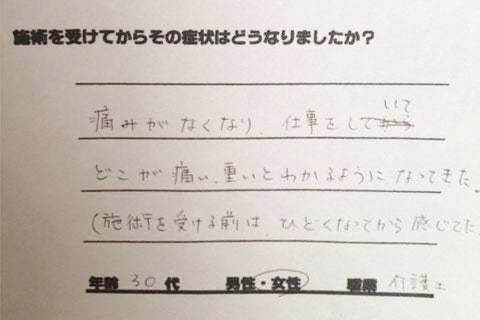 施術を受けてからその症状はどうなりましたか？
痛みがなくなり、仕事をしていて
どこが痛い、重いとわかるようになってきた。
(施術を受ける前は、ひどくなってから感じてた
年齢 30代 男性・女性 職業 介護士